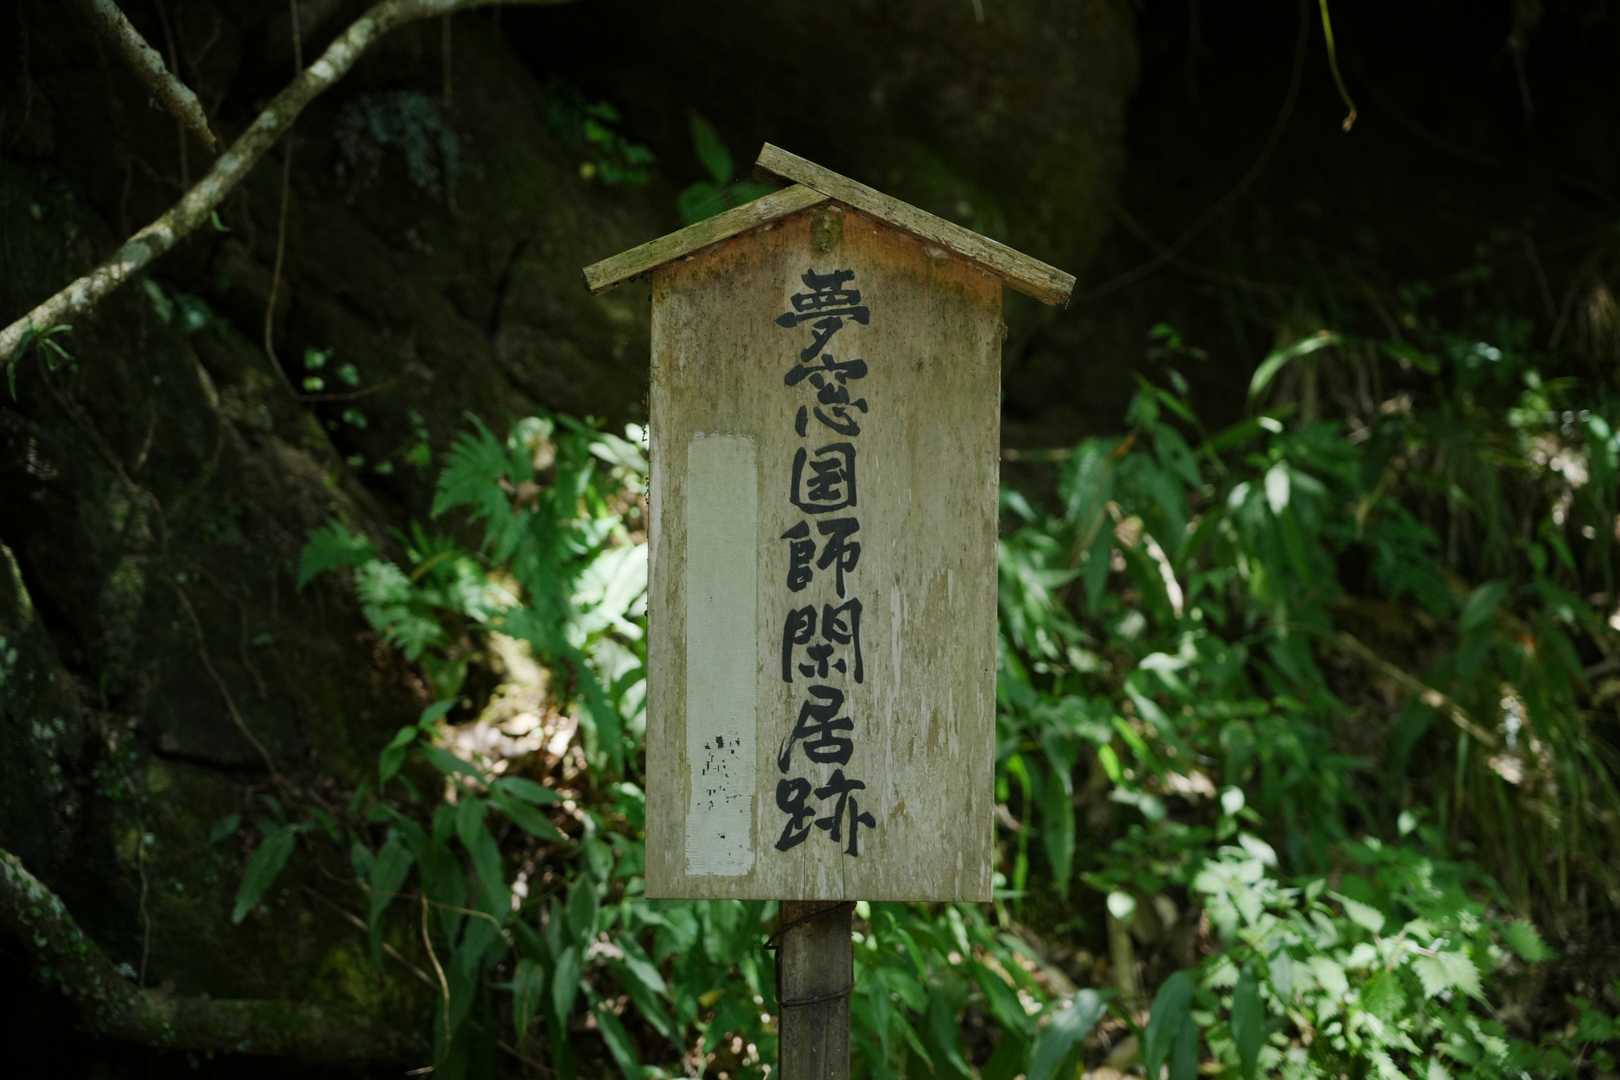 夢窓国師閑居跡